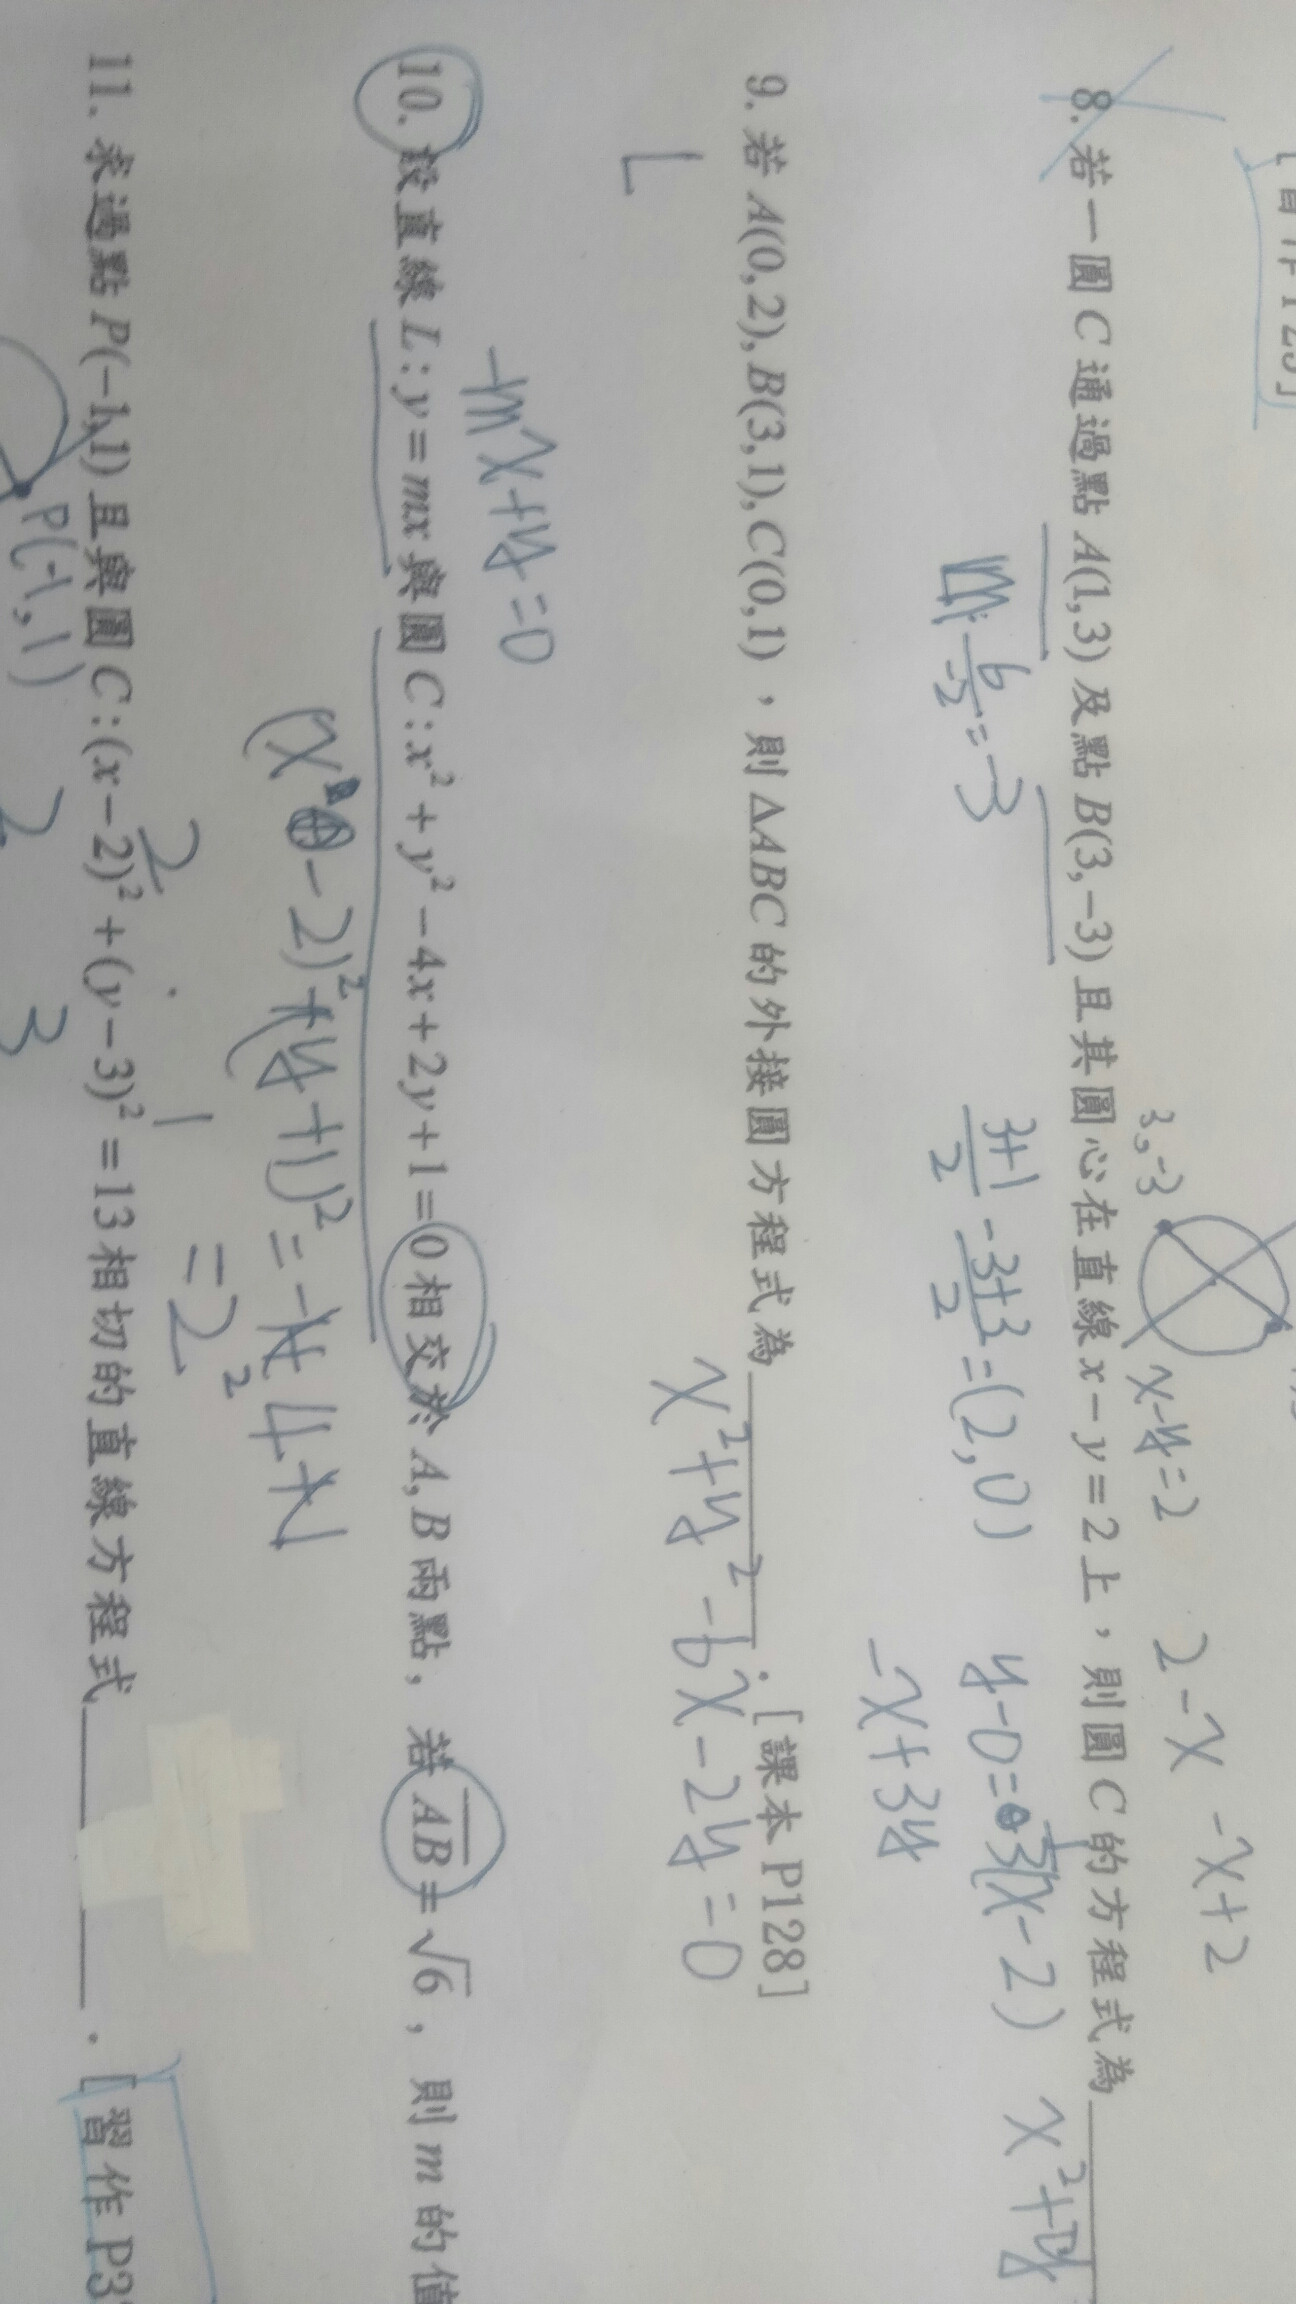 8. 若一圓 C 通過點 A(1,3) 及點 B(3,-3) 且其圓心在直線 x-y=2 上，則圓 C 的方程式為
3,-3
x-y=2
2-x
-x+2
3+1/2 -3+3/2 =(2,0)
6/-2=-3
-x+3y
x²+y
9. 若 A(0,2), B(3,1), C(0,1)，則 ΔABC 的外接圓方程式為 . [課本 P128]
x²+y²-6x-2y=0
L
10. 設直線 L:y=mx 與圓 C:x²+y²-4x+2y+1=0 相交於 A, B 兩點，若 AB=√6，則 m 的值
-mx+y=0
2 1 =2
11. 求過點 P(-1,1) 且與圓 C:(x-2)²+(y-3)²=13 相切的直線方程式 . [習作 P3
P(-1,1)
2 3